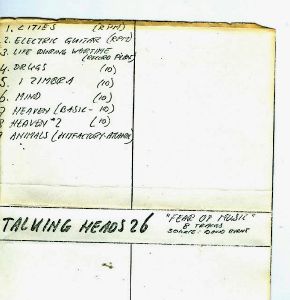 1. CITIES (RPM)
2. ELECTRIC GUITAR (RPM)
3. LIFE DURING WARTIME
(RECORD PLANT)
4. DRUGS (10)
5. I ZIMBRA (10)
6. MIND (10)
7 HEAVEN (BASIC- 10)
8 HEAVEN #2 (10)
9 ANIMALS (HITFACTORY-ATLANTIC)
TALKING HEADS 26
"FEAR OF MUSIC"
8 TRACKS
DAVID BYRNE